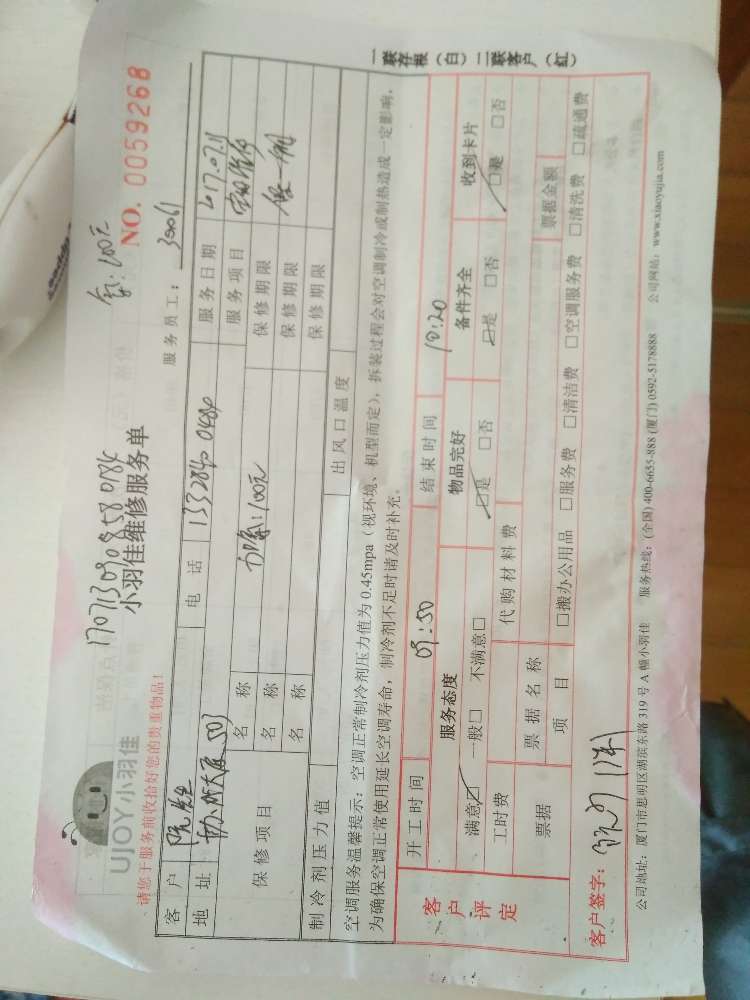 UJOY小羽佳
1707130908580184
小羽佳维修服务单
NO. 0059268
请您于服务前收拾好您的贵重物品！
服务员工：
客户
电话
服务日期
地址
服务项目
保修项目
名称
保修期限
名称
保修期限
名称
保修期限
制冷剂压力值
出风口温度
空调服务温馨提示：空调正常制冷剂压力值为0.45mpa（视环境、机型而定），拆装过程会对空调制冷或制热造成一定影响，
为确保空调正常使用延长空调寿命，制冷剂不足时请及时补充。
客户评定
开工时间 09:50 结束时间 10:20
服务态度 物品完好 备件齐全 收到卡片
满意☑ 一般□ 不满意□ ☑是 □否 ☑是 □否 ☑是 □否
工时费 代购材料费
票据 票据名称 票据金额
项目 □搬办公用品 □服务费 □清洁费 □空调服务费 □清洗费 □疏通费
客户签字：
公司地址：厦门市思明区湖滨东路319号A幢小羽佳 服务热线：(全国) 400-6655-888 (厦门) 0592-5178888 公司网站：www.xiaoyujia.com
一联存根（白）二联客户（红）